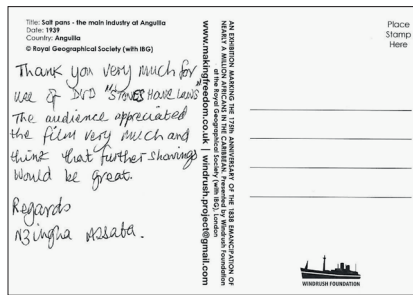 Title: Salt pans - the main industry at Anguilla
Date: 1939
Country: Anguilla
© Royal Geographical Society (with IBG)
Thank you very much for
use of DVD "STONES HAVE LAWS"
The audience appreciated
the film very much and
think that further showings
would be great.
Regards
Nzingha Assata.
AN EXHIBITION MARKING THE 175TH ANNIVERSARY OF THE 1838 EMANCIPATION OF
NEARLY A MILLION AFRICANS IN THE CARIBBEAN. Presented by Windrush Foundation
at the Royal Geographical Society (with IBG), London
www.makingfreedom.co.uk | windrush.project@gmail.com
Place
Stamp
Here
WINDRUSH FOUNDATION